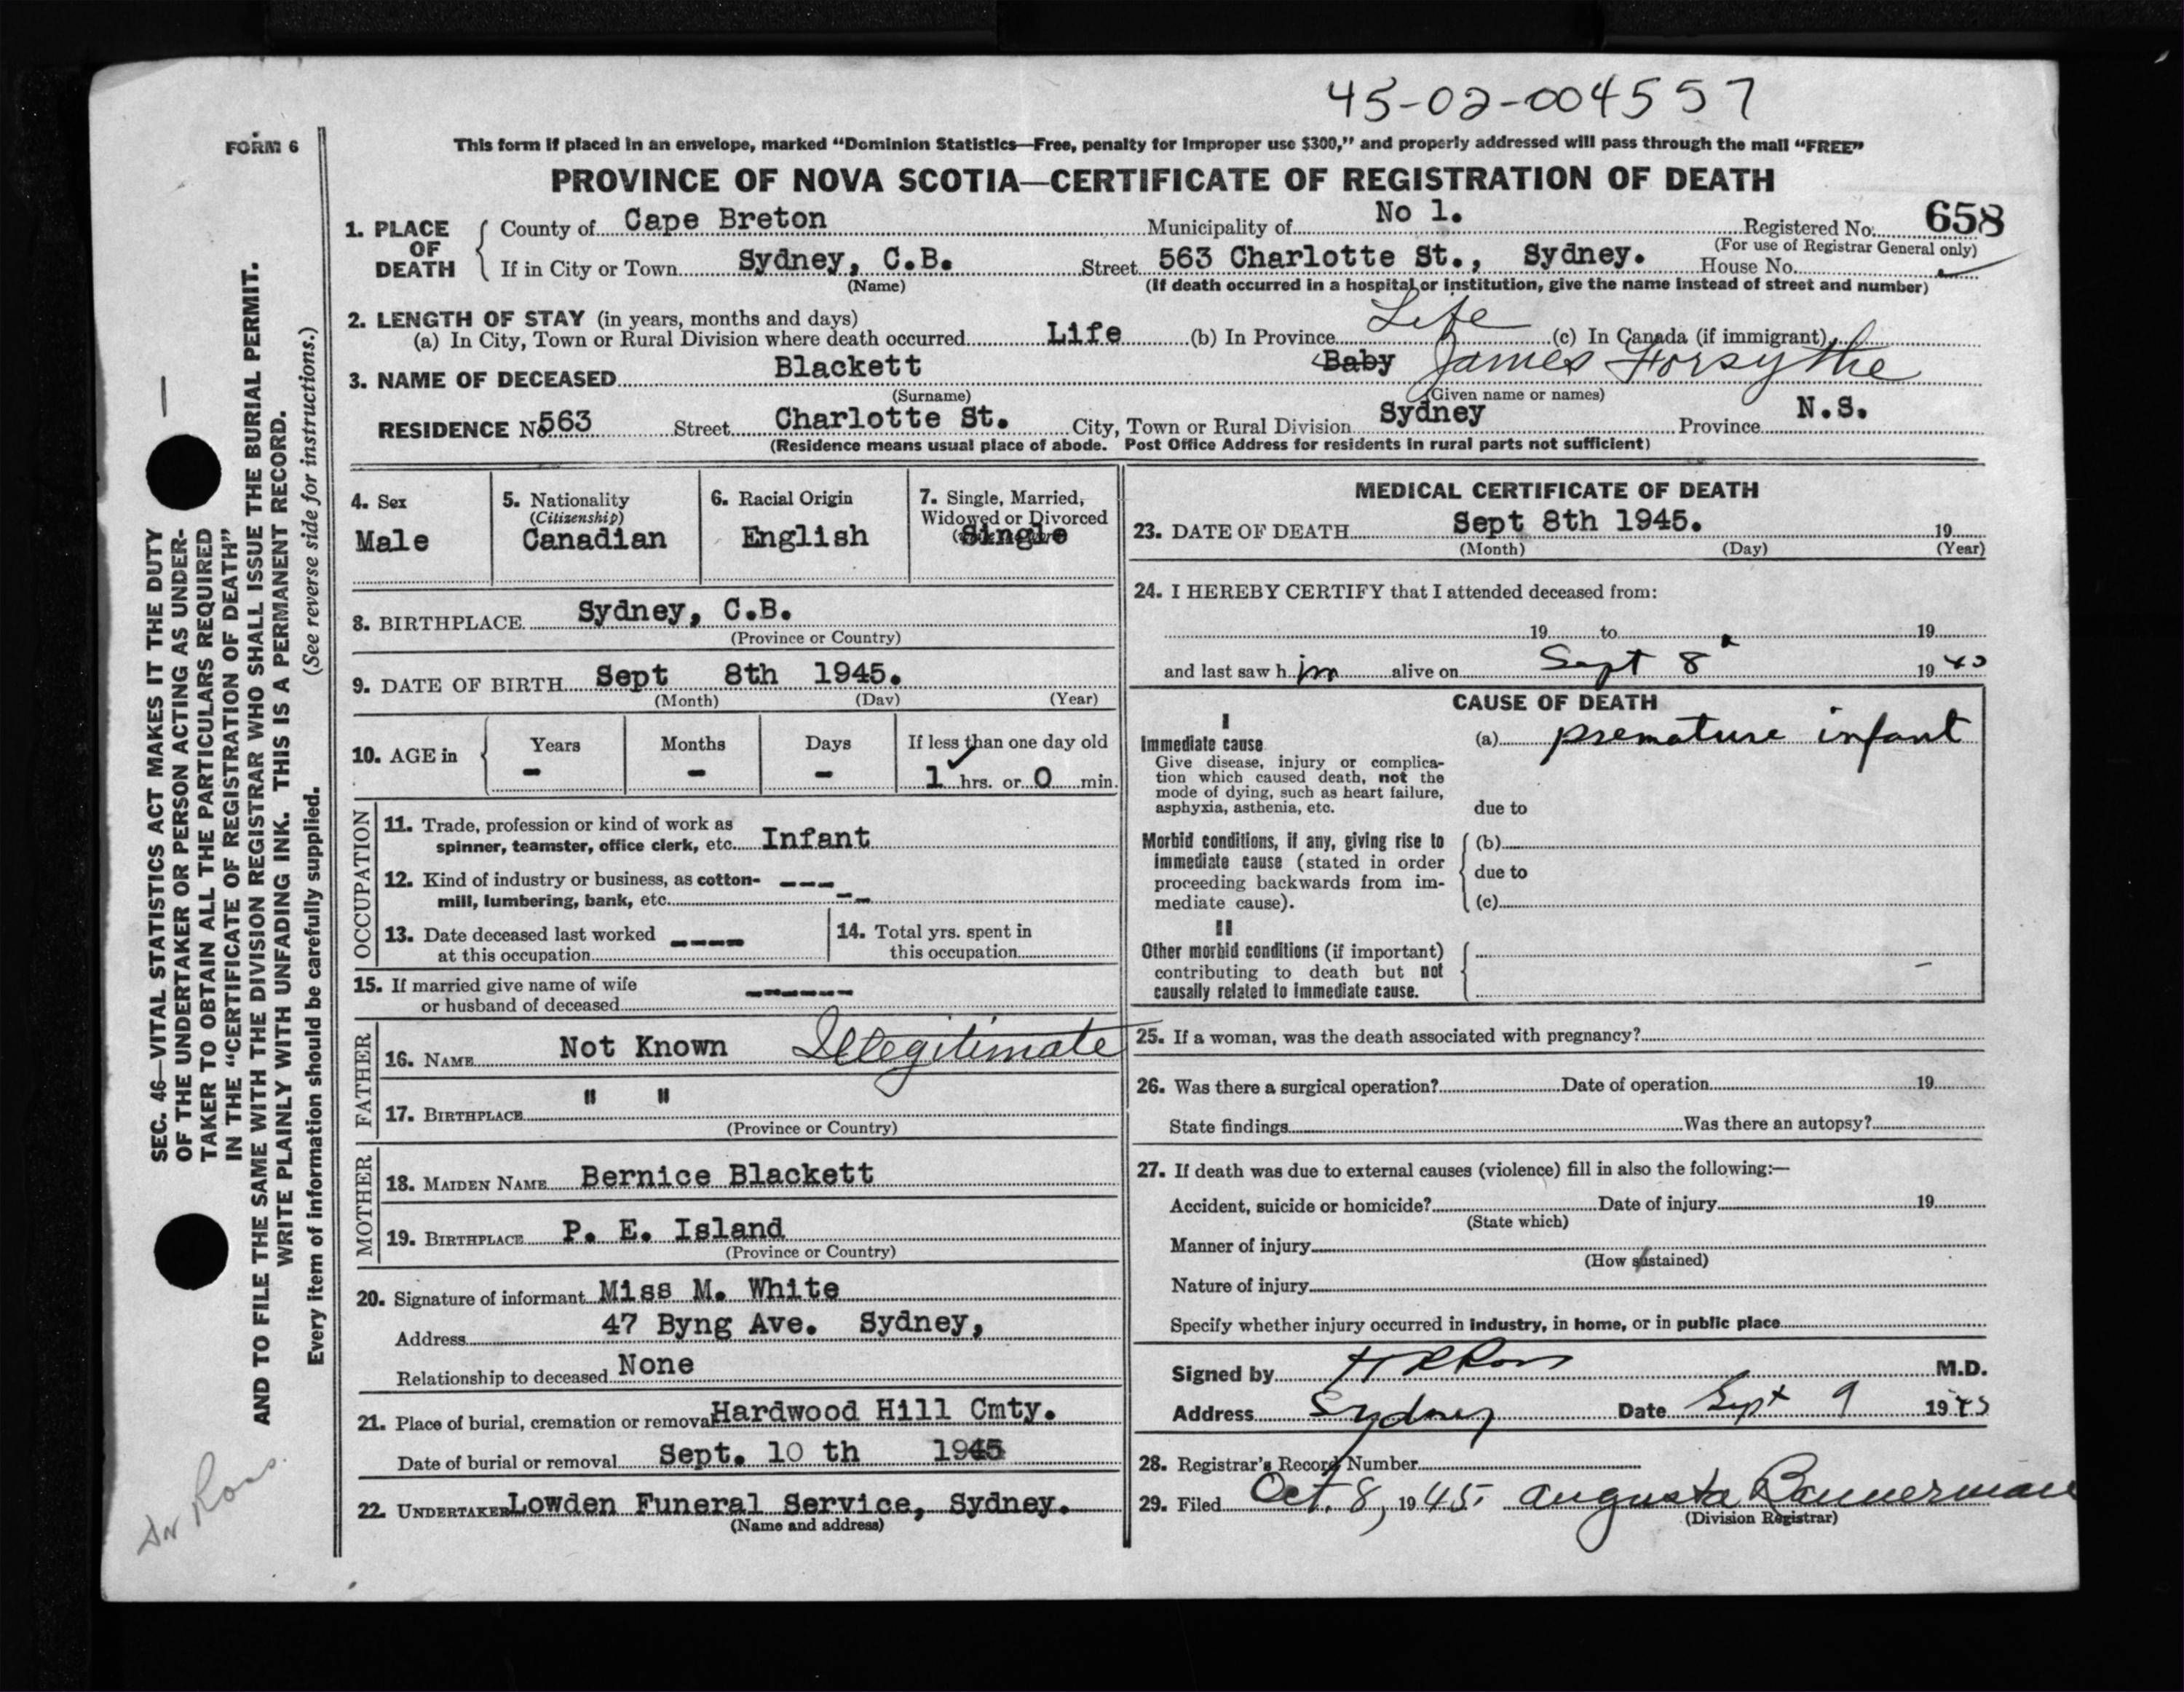 45-02-004557
FORM 6
This form if placed in an envelope, marked “Dominion Statistics—Free, penalty for improper use $300,” and properly addressed will pass through the mail “FREE”
PROVINCE OF NOVA SCOTIA—CERTIFICATE OF REGISTRATION OF DEATH
1. PLACE OF DEATH County of Cape Breton Municipality of No 1. Registered No. 658
(For use of Registrar General only)
If in City or Town Sydney, C.B. Street 563 Charlotte St., Sydney. House No.
(Name) (If death occurred in a hospital or institution, give the name instead of street and number)
2. LENGTH OF STAY (in years, months and days)
(a) In City, Town or Rural Division where death occurred Life (b) In Province Life (c) In Canada (if immigrant)
3. NAME OF DECEASED Blackett Baby James Forsythe
(Surname) (Given name or names)
RESIDENCE No 563 Street Charlotte St. City, Town or Rural Division Sydney Province N.S.
(Residence means usual place of abode. Post Office Address for residents in rural parts not sufficient)
4. Sex
Male
5. Nationality
(Citizenship)
Canadian
6. Racial Origin
English
7. Single, Married,
Widowed or Divorced
Single
8. BIRTHPLACE Sydney, C.B.
(Province or Country)
9. DATE OF BIRTH Sept 8th 1945.
(Month) (Day) (Year)
10. AGE in Years Months Days If less than one day old
- - - 1 hrs. or 0 min.
OCCUPATION
11. Trade, profession or kind of work as
spinner, teamster, office clerk, etc. Infant
12. Kind of industry or business, as cotton- ---
mill, lumbering, bank, etc. --
13. Date deceased last worked ----
at this occupation
14. Total yrs. spent in
this occupation
15. If married give name of wife ------
or husband of deceased
FATHER
16. NAME Not Known Illegitimate
17. BIRTHPLACE " "
(Province or Country)
MOTHER
18. MAIDEN NAME Bernice Blackett
19. BIRTHPLACE P. E. Island
(Province or Country)
20. Signature of informant Miss M. White
Address 47 Byng Ave. Sydney,
Relationship to deceased None
21. Place of burial, cremation or removal Hardwood Hill Cmty.
Date of burial or removal Sept. 10 th 1945
22. UNDERTAKER Lowden Funeral Service, Sydney.
(Name and address)
MEDICAL CERTIFICATE OF DEATH
23. DATE OF DEATH Sept 8th 1945. 19
(Month) (Day) (Year)
24. I HEREBY CERTIFY that I attended deceased from:
19 to 19
and last saw him alive on Sept 8 1945
CAUSE OF DEATH
I
Immediate cause (a) premature infant
Give disease, injury or complica-
tion which caused death, not the
mode of dying, such as heart failure,
asphyxia, asthenia, etc. due to
Morbid conditions, if any, giving rise to (b)
immediate cause (stated in order
proceeding backwards from im- due to
mediate cause). (c)
II
Other morbid conditions (if important)
contributing to death but not
causally related to immediate cause.
25. If a woman, was the death associated with pregnancy?
26. Was there a surgical operation? Date of operation 19
State findings Was there an autopsy?
27. If death was due to external causes (violence) fill in also the following:—
Accident, suicide or homicide? Date of injury 19
(State which)
Manner of injury
(How sustained)
Nature of injury
Specify whether injury occurred in industry, in home, or in public place
Signed by H R Ross M.D.
Address Sydney Date Sept 9 1945
28. Registrar's Record Number
29. Filed Oct. 8, 1945. Augusta Bannerman
(Division Registrar)
SEC. 46—VITAL STATISTICS ACT MAKES IT THE DUTY
OF THE UNDERTAKER OR PERSON ACTING AS UNDER-
TAKER TO OBTAIN ALL THE PARTICULARS REQUIRED
IN THE “CERTIFICATE OF REGISTRATION OF DEATH”
AND TO FILE THE SAME WITH THE DIVISION REGISTRAR WHO SHALL ISSUE THE BURIAL PERMIT.
WRITE PLAINLY WITH UNFADING INK. THIS IS A PERMANENT RECORD.
Every item of information should be carefully supplied. (See reverse side for instructions.)
Dr Ross.